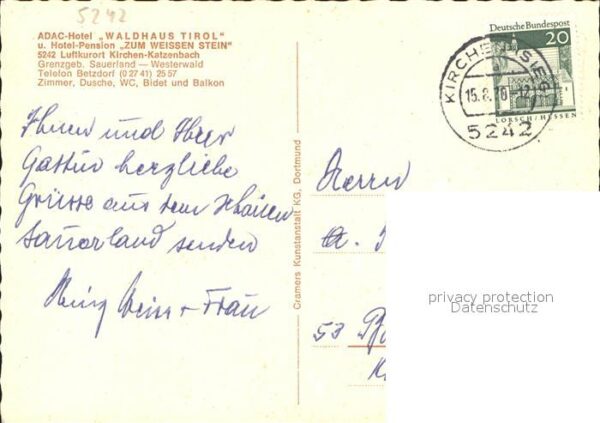 5242
ADAC-Hotel „WALDHAUS TIROL“
u. Hotel-Pension „ZUM WEISSEN STEIN“
5242 Luftkurort Kirchen-Katzenbach
Grenzgeb. Sauerland — Westerwald
Telefon Betzdorf (0 27 41) 25 57
Zimmer, Dusche, WC, Bidet und Balkon
Deutsche Bundespost
20
LORSCH/HESSEN
KIRCHEN, SIEG
15.8.70-12
5242
Ihnen und Ihrer
Gattin herzliche
Grüsse aus dem schönen
Sauerland senden
Heinz + Frau
Cramers Kunstanstalt KG, Dortmund
Herrn
53
privacy protection
Datenschutz